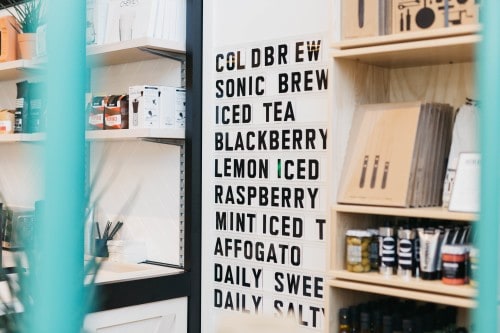 COLDBREW
SONIC BREW
ICED TEA
BLACKBERRY
LEMON ICED
RASPBERRY
MINT ICED T
AFFOGATO
DAILY SWEE
DAILY SALTY